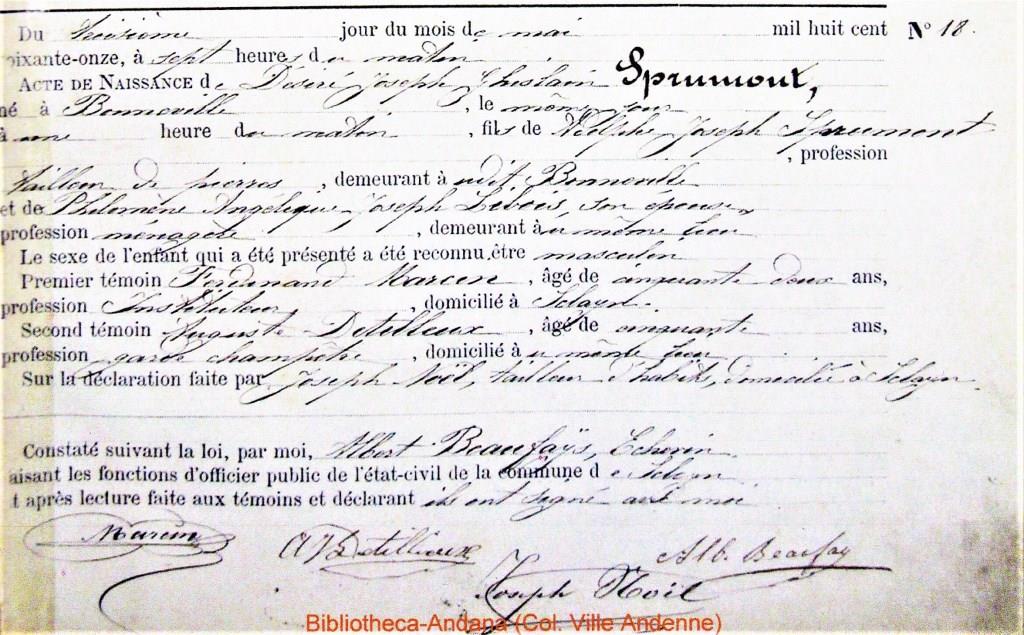 Du troisième jour du mois de mai mil huit cent N° 18.
oixante-onze, à sept heures du matin
ACTE DE NAISSANCE de Désiré Joseph Ghislain Sprumont,
né à Bonneville, le même jour
à une heure du matin, fils de Adolphe Joseph Sprumont
, profession
tailleur de pierres, demeurant à udit Bonneville
et de Philomène Angélique Joseph, son épouse,
profession ménagère, demeurant à u même lieu
Le sexe de l'enfant qui a été présenté a été reconnu être masculin
Premier témoin Ferdinand Marcin, âgé de cinquante deux ans,
profession Instituteur, domicilié à Sclayn.
Second témoin Auguste Detilleux, âgé de cinquante ans,
profession garde champêtre, domicilié à u même lieu
Sur la déclaration faite par Joseph Noël, tailleur d'habits, domicilié à Sclayn.
Constaté suivant la loi, par moi, Albert Beaufaÿs, Echevin
aisant les fonctions d'officier public de l'état-civil de la commune de Sclayn
t après lecture faite aux témoins et déclarant ils ont signé avec moi
Marcin
A J Detilleux Alb. Beaufay
Joseph Noël
Bibliotheca-Andana (Col. Ville Andenne)